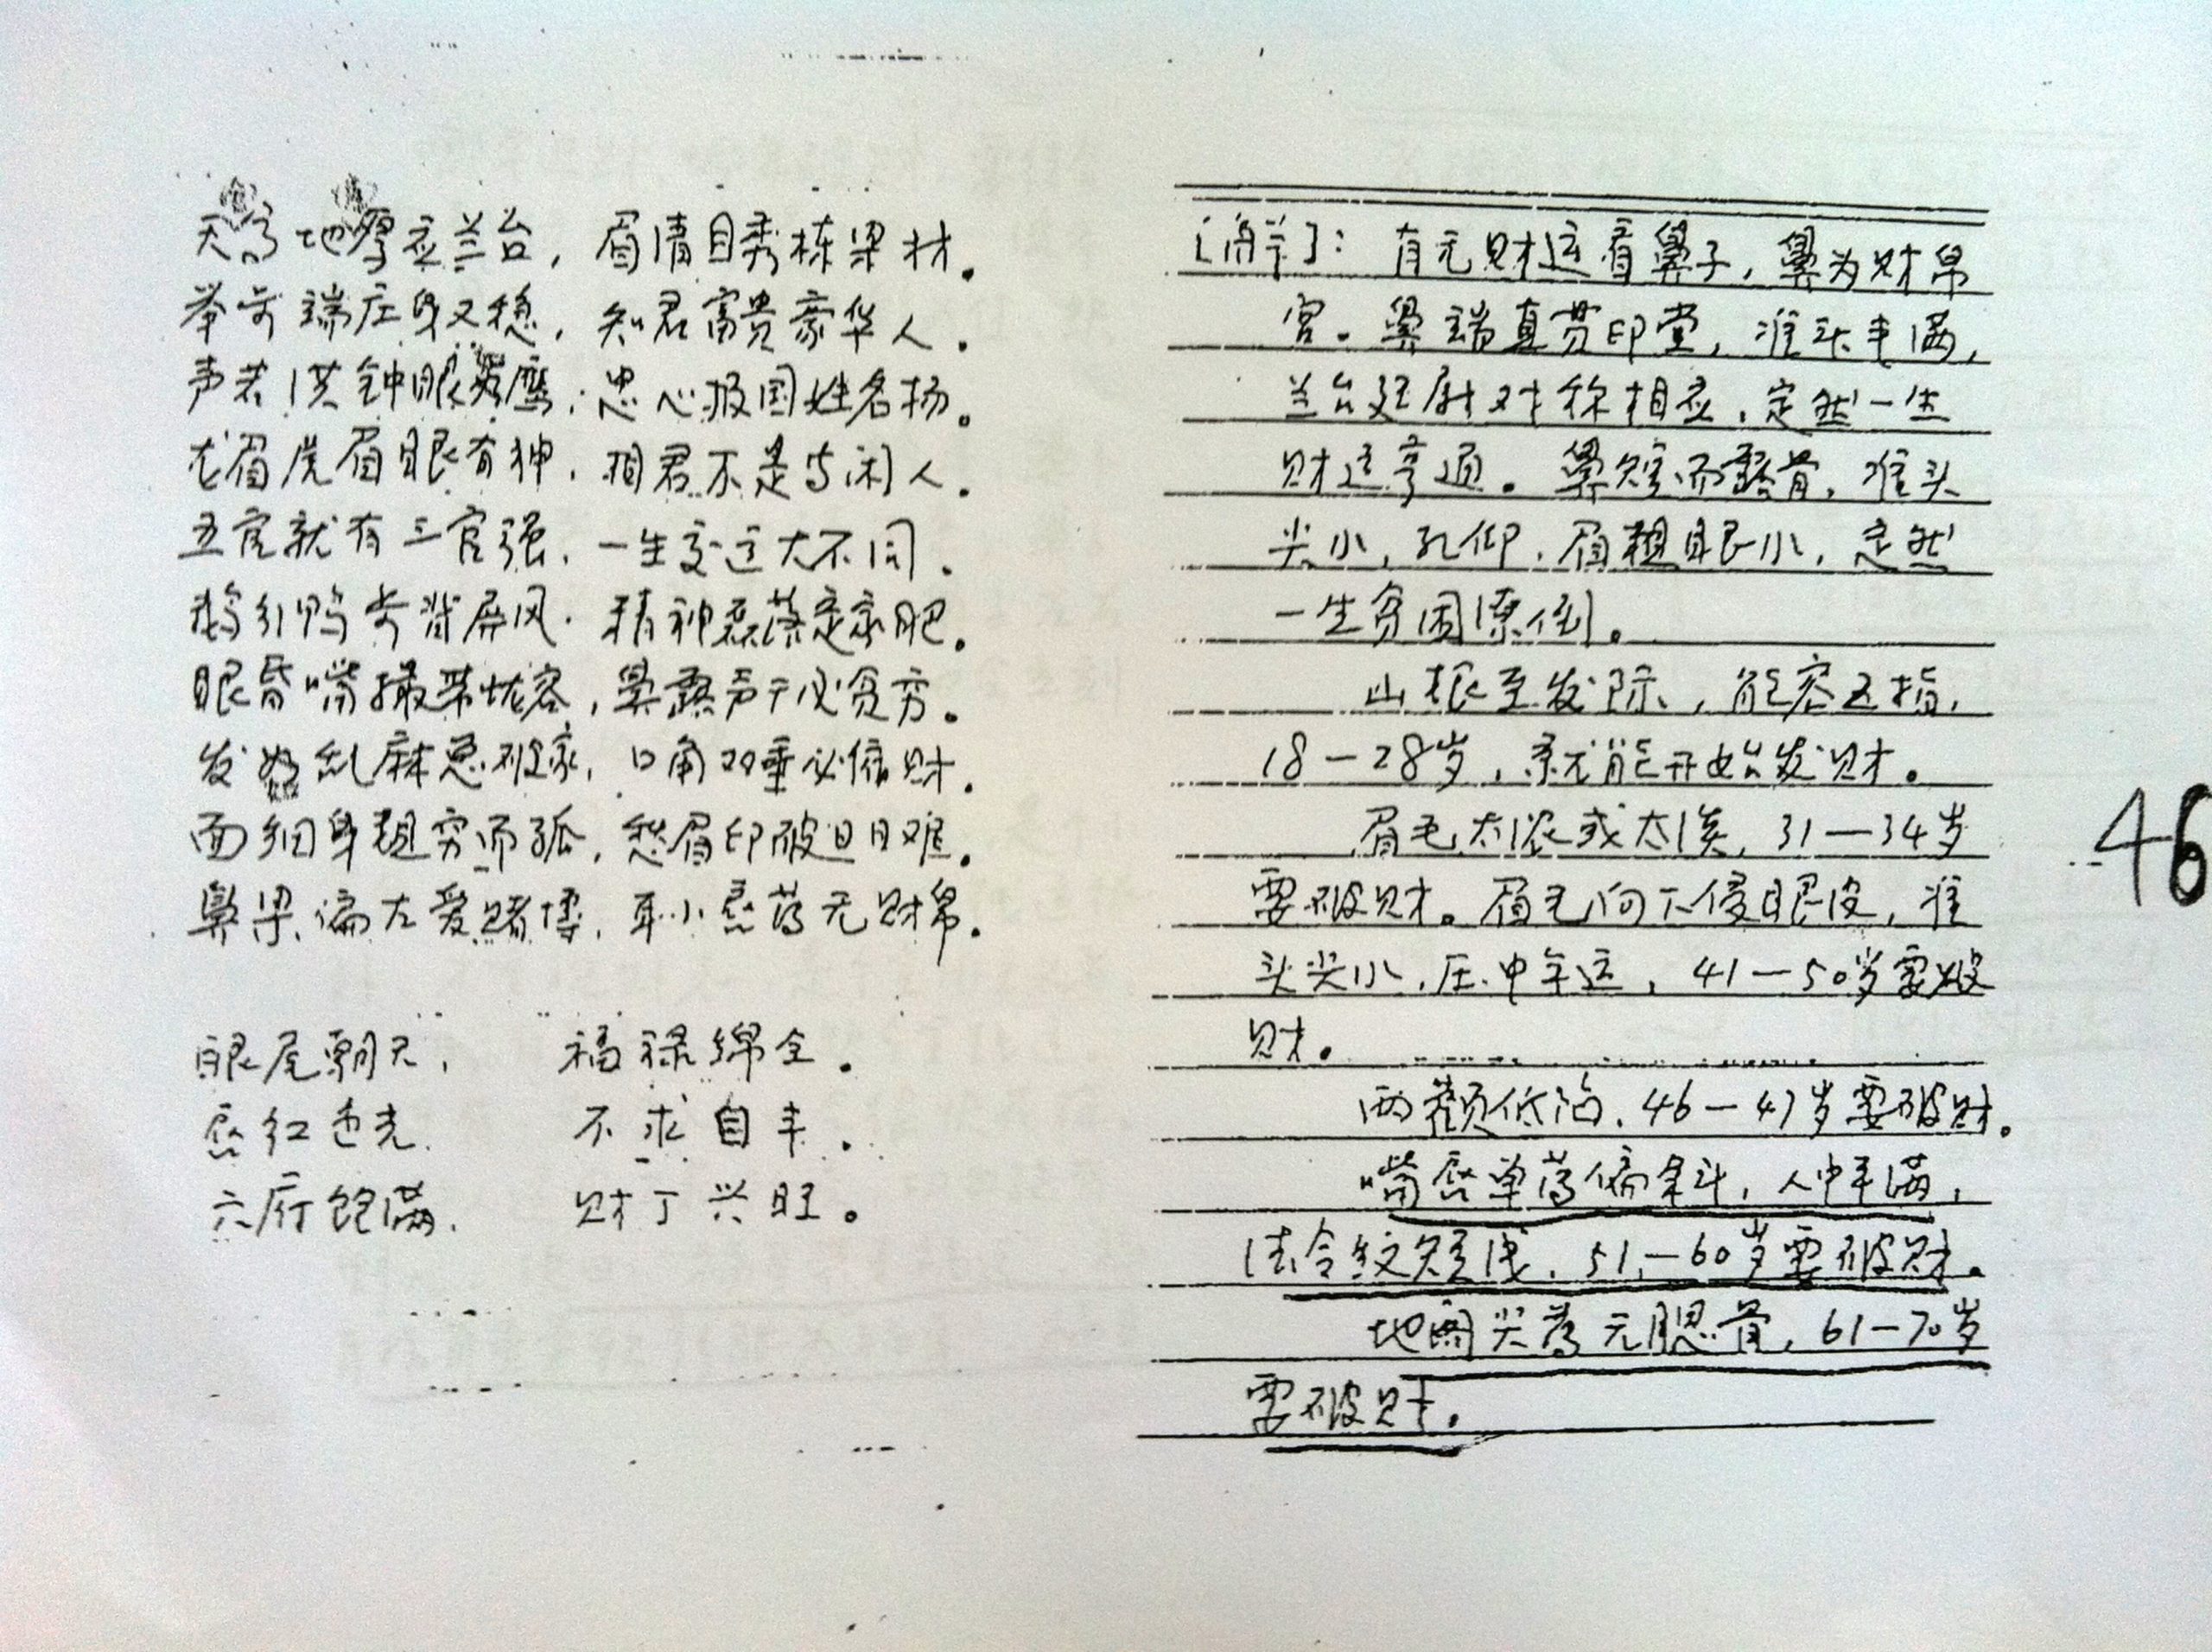 天高地厚应兰台，眉清目秀栋梁材。
举步端庄身又稳，知君富贵豪华人。
声若洪钟眼若鹰，忠心报国姓名扬。
龙眉虎眉眼有神，相君不是等闲人。
五官就有三官强，一生交运大不同。
鹅行鸭步背屏风，精神磊落定家肥。
眼昏嘴撮带忧容，鼻露声干必贫穷。
发如乱麻急破家，口角双垂必借财。
面细身粗穷而孤，愁眉印破过日难。
鼻梁偏左爱赌博，耳小唇薄无财帛。
眼尾朝天，福禄绵全。
唇红色光，不求自丰。
六府饱满，财丁兴旺。
[解]：有无财运看鼻子，鼻为财帛
宫。鼻端直贯印堂，准头丰满，
兰台廷尉对称相应，定然一生
财运亨通。鼻短而露骨，准头
尖小，孔仰，眉粗眼小，定然
一生贫困潦倒。
山根至发际，能容五指，
18—28岁，就能开始发财。
眉毛太浓或太淡，31—34岁
要破财。眉毛向下侵眼皮，准
头尖小，压中年运，41—50岁要破
财。
两颧低陷，46—47岁要破财。
嘴唇单薄偏斜，人中平满，
法令纹短浅，51—60岁要破财。
地阁尖薄无腮骨，61—70岁
要破财。
46